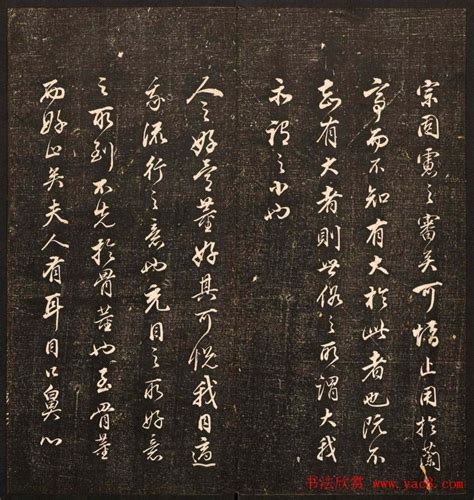 宗固處之審矣可惜止用於蘭
亭而不知有大於此者也既不
知有大者則世俗之所謂大我
亦謂之小也
人之好骨董好其可悅我目適
我流行之意也充目之所好意
之所到不先於骨董也至骨董
而好止矣夫人有耳目口鼻心
书法欣赏 www.yac8.com